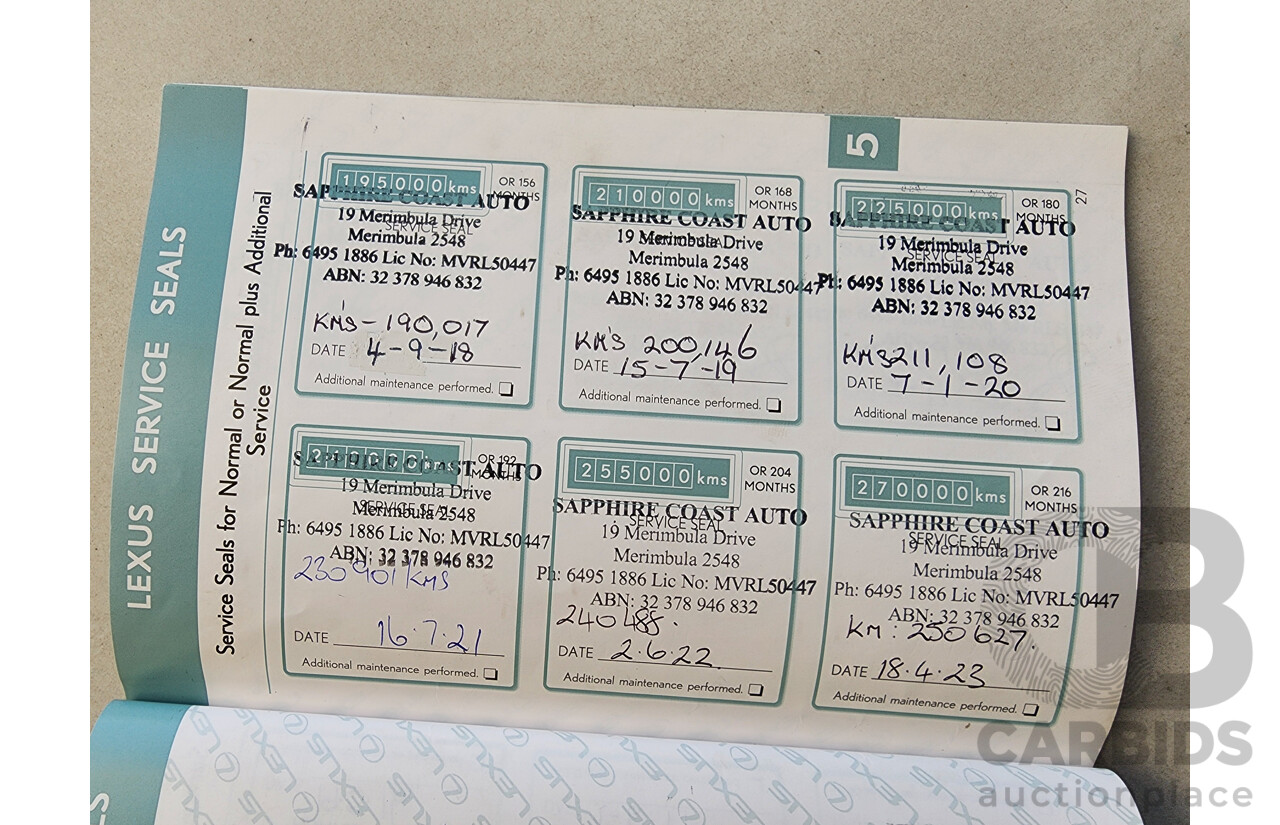 LEXUS SERVICE SEALS
Service Seals for Normal or Normal plus Additional
Service
5
27
195000 kms
OR 156
MONTHS
SAPPHIRE COAST AUTO
19 Merimbula Drive
SERVICE SEAL
Merimbula 2548
Ph: 6495 1886 Lic No: MVRL50447
ABN: 32 378 946 832
KMS - 190,017
DATE 4-9-18
Additional maintenance performed.
210000 kms
OR 168
MONTHS
SAPPHIRE COAST AUTO
19 Merimbula Drive
Merimbula 2548
Ph: 6495 1886 Lic No: MVRL50447
ABN: 32 378 946 832
KM'S 200,146
DATE 15-7-19
Additional maintenance performed.
225000 kms
OR 180
MONTHS
SAPPHIRE COAST AUTO
19 Merimbula Drive
SERVICE SEAL
Merimbula 2548
Ph: 6495 1886 Lic No: MVRL50447
ABN: 32 378 946 832
KM'S 211,108
DATE 7-1-20
Additional maintenance performed.
OR 192
MONTHS
SAPPHIRE COAST AUTO
19 Merimbula Drive
SERVICE SEAL
Merimbula 2548
Ph: 6495 1886 Lic No: MVRL50447
ABN: 32 378 946 832
230901 KMS
DATE 16.7.21
Additional maintenance performed.
255000 kms
OR 204
MONTHS
SAPPHIRE COAST AUTO
SERVICE SEAL
19 Merimbula Drive
Merimbula 2548
Ph: 6495 1886 Lic No: MVRL50447
ABN: 32 378 946 832
240488.
DATE 2.6.22
Additional maintenance performed.
270000 kms
OR 216
MONTHS
SAPPHIRE COAST AUTO
SERVICE SEAL
19 Merimbula Drive
Merimbula 2548
Ph: 6495 1886 Lic No: MVRL50447
ABN: 32 378 946 832
KM: 250627.
DATE 18.4.23
Additional maintenance performed.
LEXUS
CARBIDS
auctionplace